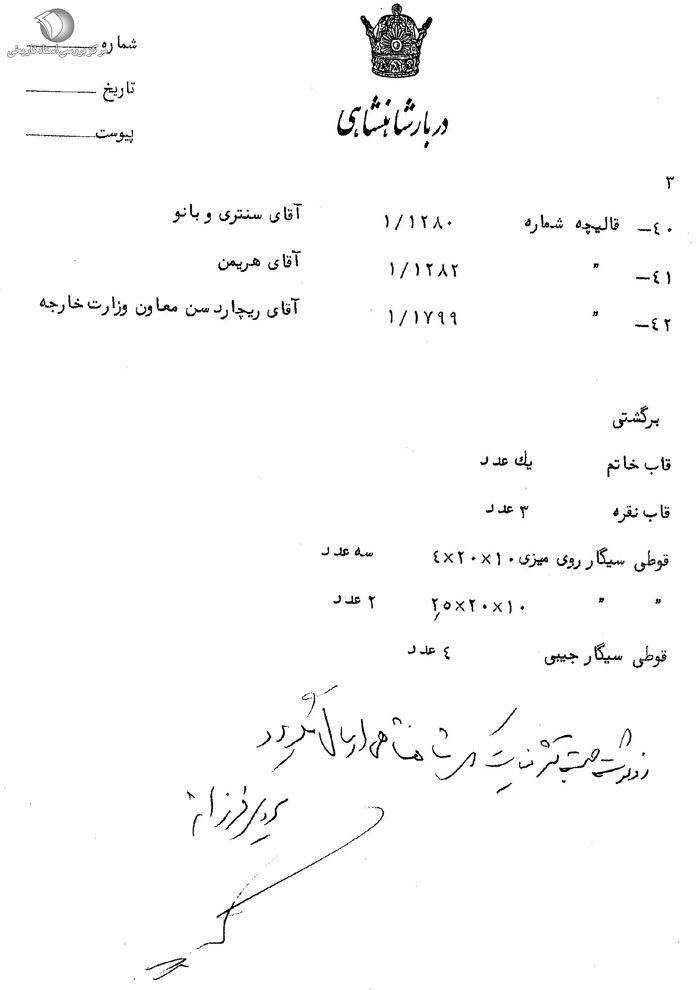 مرکز بررسی اسناد تاریخی
شماره
تاریخ
پیوست
دربار شاهنشاهی
۳
۴۰- قالیچه شماره ۱/۱۲۸۰ آقای سنتری و بانو
۴۱- " ۱/۱۲۸۲ آقای هریمن
۴۲- " ۱/۱۷۹۹ آقای ریچاردسن معاون وزارت خارجه
برگشتی
قاب خاتم یك عدد
قاب نقره ۳ عدد
قوطی سیگار روی میزی ۱۰×۲۰×۴ سه عدد
" " ۱۰×۲۰×۲٫۵ ۲ عدد
قوطی سیگار جیبی ٤ عدد
رونوشت جهت تشریفات شاهنشاهی ارسال گردد